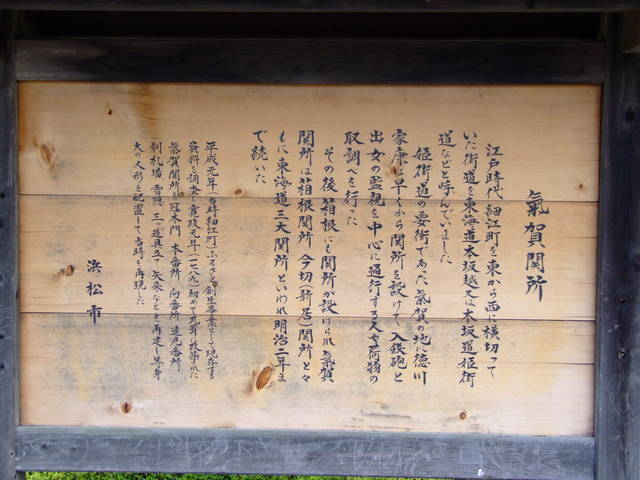 氣賀関所
江戸時代、細江町を東から西に横切って
いた街道を東海道本坂越又は本坂道姫街
道などと呼んでいました
姫街道の要衝であった氣賀の地に徳川
家康は早くから関所を設けて入鉄砲と
出女の監視を中心に通行する人や荷物の
取調べを行った
その後箱根にも関所が設けられ氣賀
関所は箱根関所 今切(新居)関所と々
もに東海道三大関所といわれ明治二年ま
で続いた
平成元年、当時細江町「ふるさと創生事業」として現存する
資料を調査し寛政元年(一七八九)
氣賀関所の冠木門 本番所 向番所 遠見番所
制札場 雪隠 三つ道具立て 矢来などを再建し等身
大の人形を配置して当時を再現した
浜松市